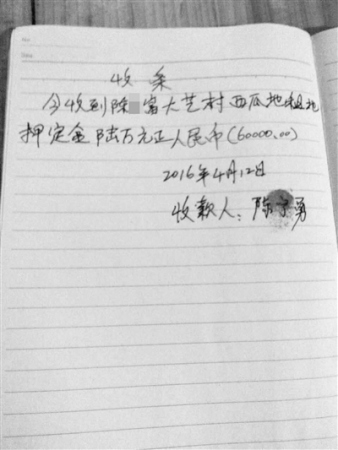 收条
今收到陈 富大艺村西瓜地租地
押定金陆万元正人民币(60000.00)
2016年4月12日
收款人:陈 勇